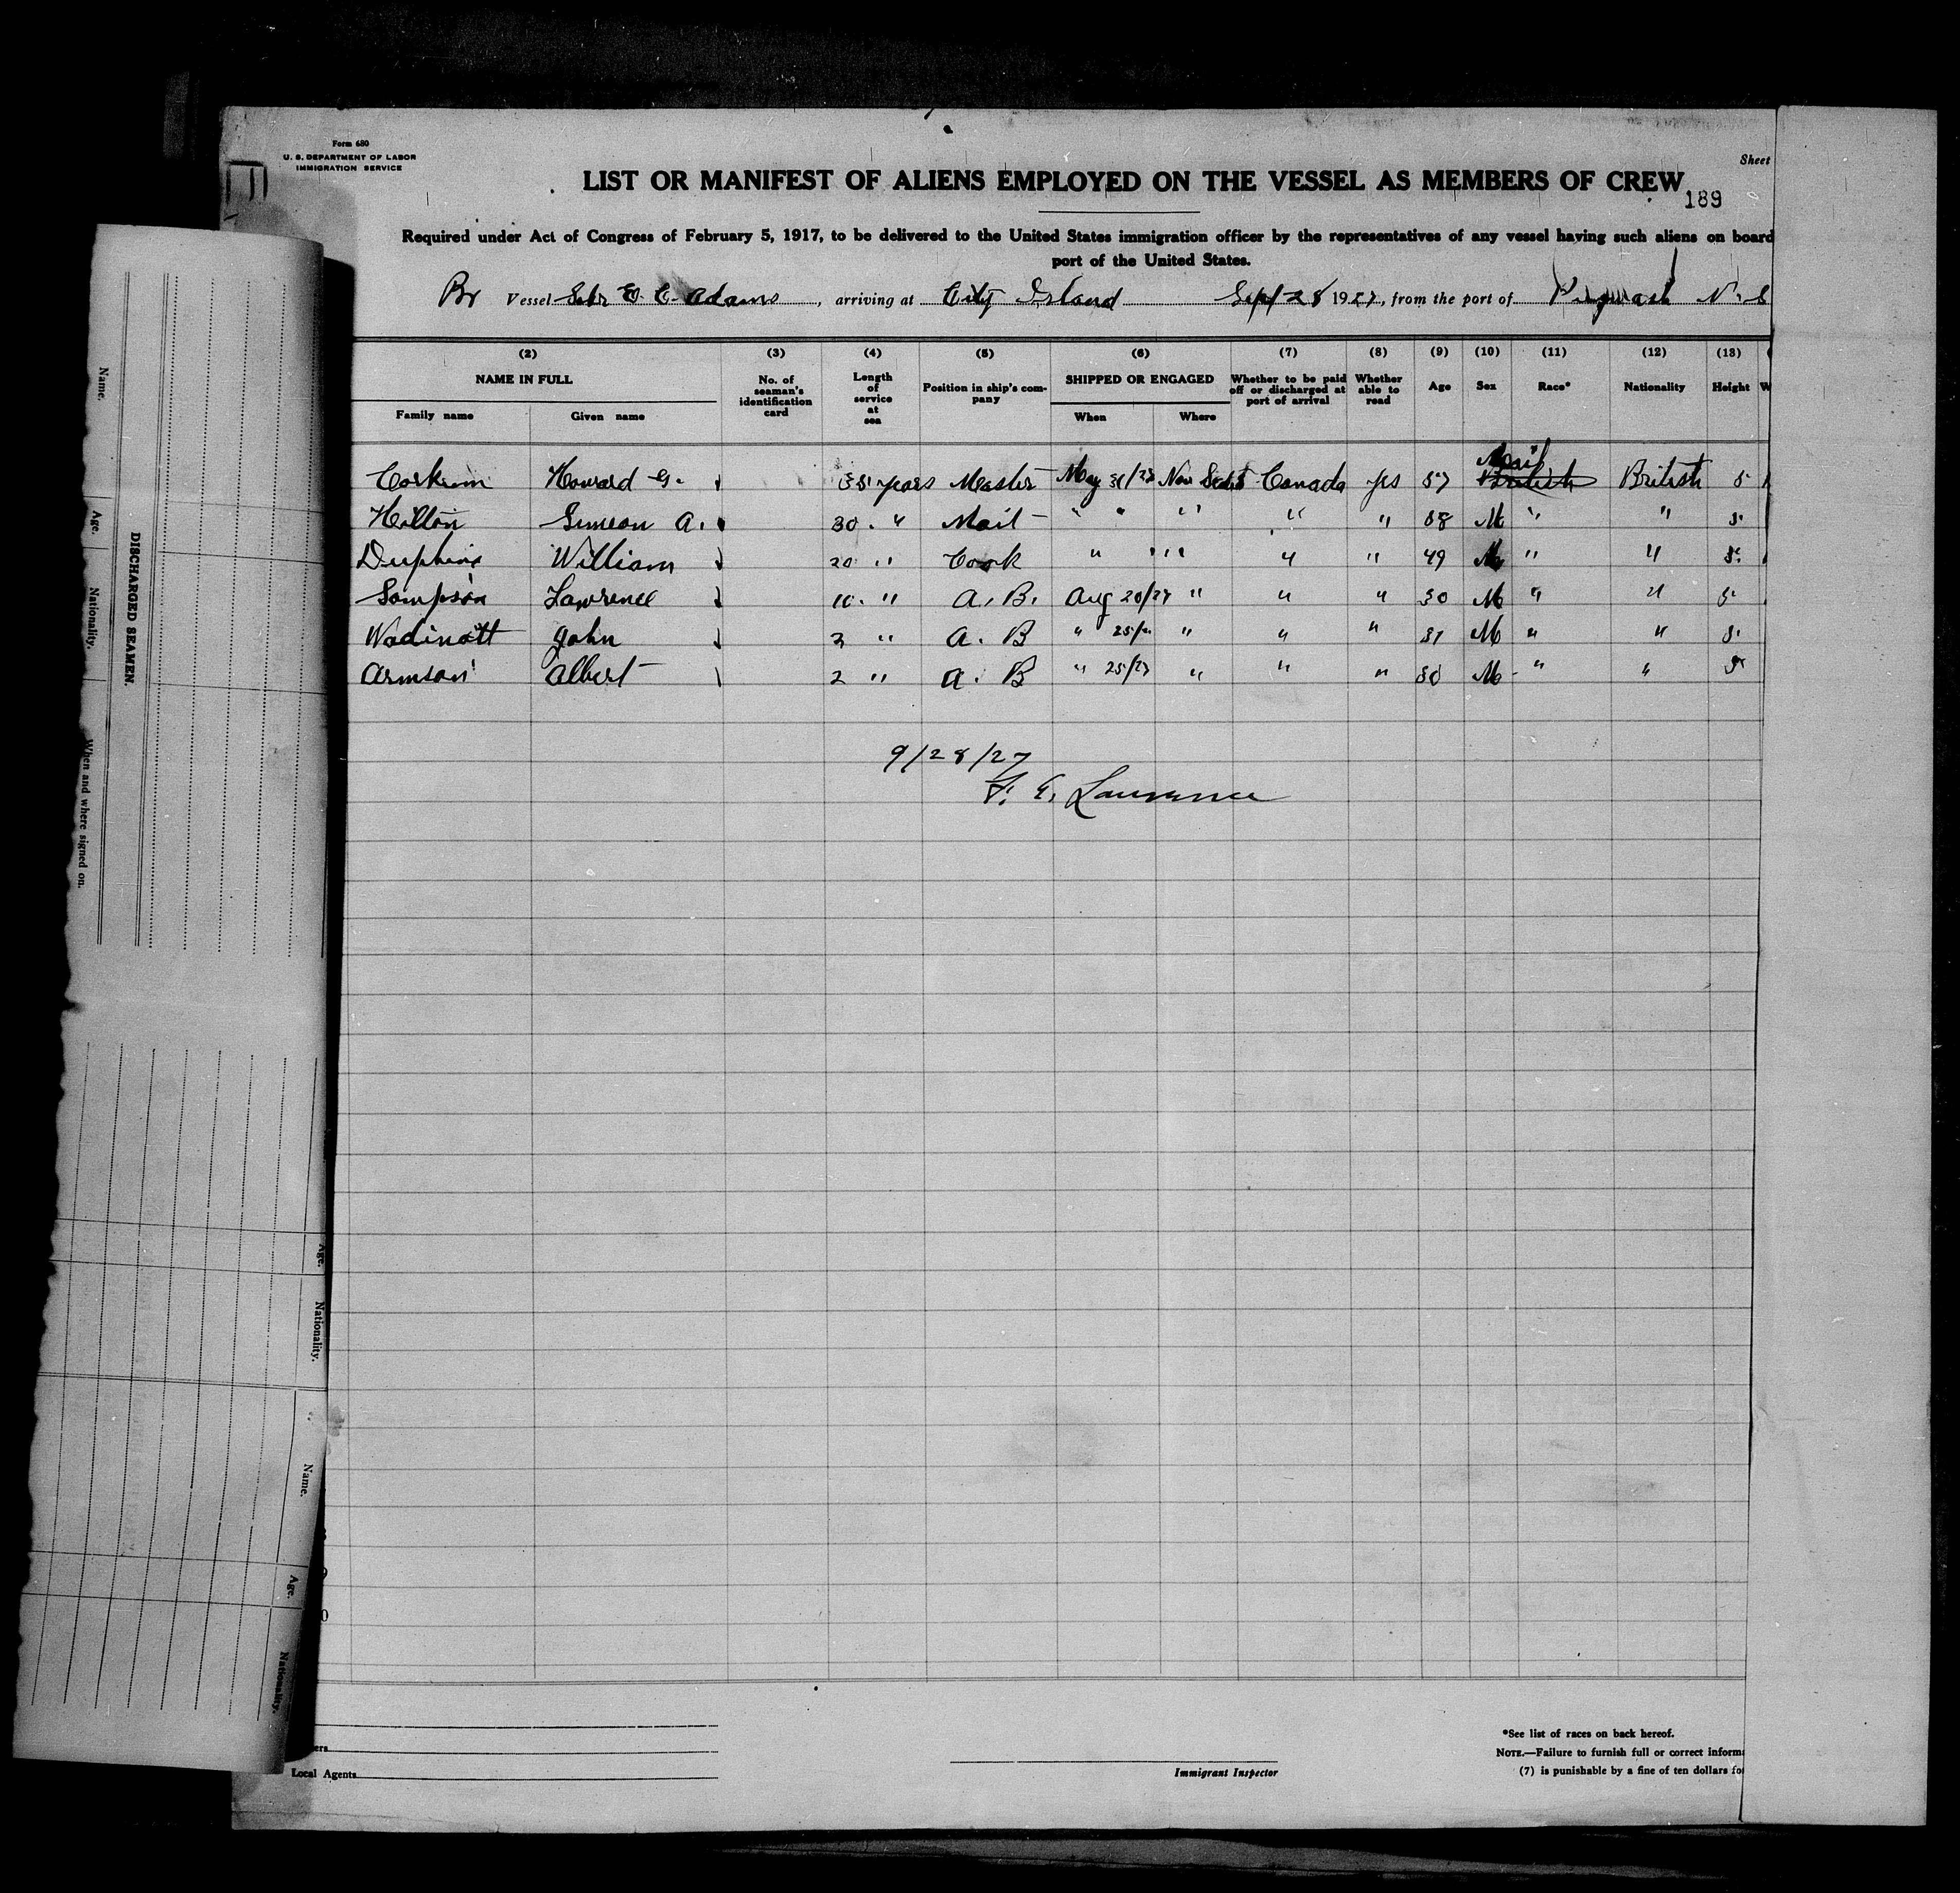 Form 680
U. S. DEPARTMENT OF LABOR
IMMIGRATION SERVICE
Sheet
LIST OR MANIFEST OF ALIENS EMPLOYED ON THE VESSEL AS MEMBERS OF CREW
189
Required under Act of Congress of February 5, 1917, to be delivered to the United States immigration officer by the representatives of any vessel having such aliens on board
port of the United States.
Br Vessel Schr E. C. Adams, arriving at City Island Sept 28 1927, from the port of Pugwash N. S
(2) (3) (4) (5) (6) (7) (8) (9) (10) (11) (12) (13)
NAME IN FULL No. of seaman's identification card Length of service at sea Position in ship's company SHIPPED OR ENGAGED Whether to be paid off or discharged at port of arrival Whether able to read Age Sex Race* Nationality Height W
Family name Given name When Where
Corkum Howard G. 35 years Master May 31/27 Nova Scotia Canada Yes 57 British British 5
Hilton Simeon A. 30 " Mait " " " " " " 58 M " " 5
William 20 " Cook " " " " " 49 M " " 5
Sampson Lawrence 10 " A. B. Aug 20/27 " " " 30 M " " 5
John 2 " A. B " 25/ " " " M " " 5
Armson Albert 2 " A. B " 25/27 " " " M " " 5
9/28/27
F. E. Lawrence
Name. Age. Nationality. When and where signed on.
DISCHARGED SEAMEN.
Age. Nationality.
Name. Age. Nationality.
ers
Local Agents
Immigrant Inspector
*See list of races on back hereof.
NOTE.—Failure to furnish full or correct informa
(7) is punishable by a fine of ten dollars for